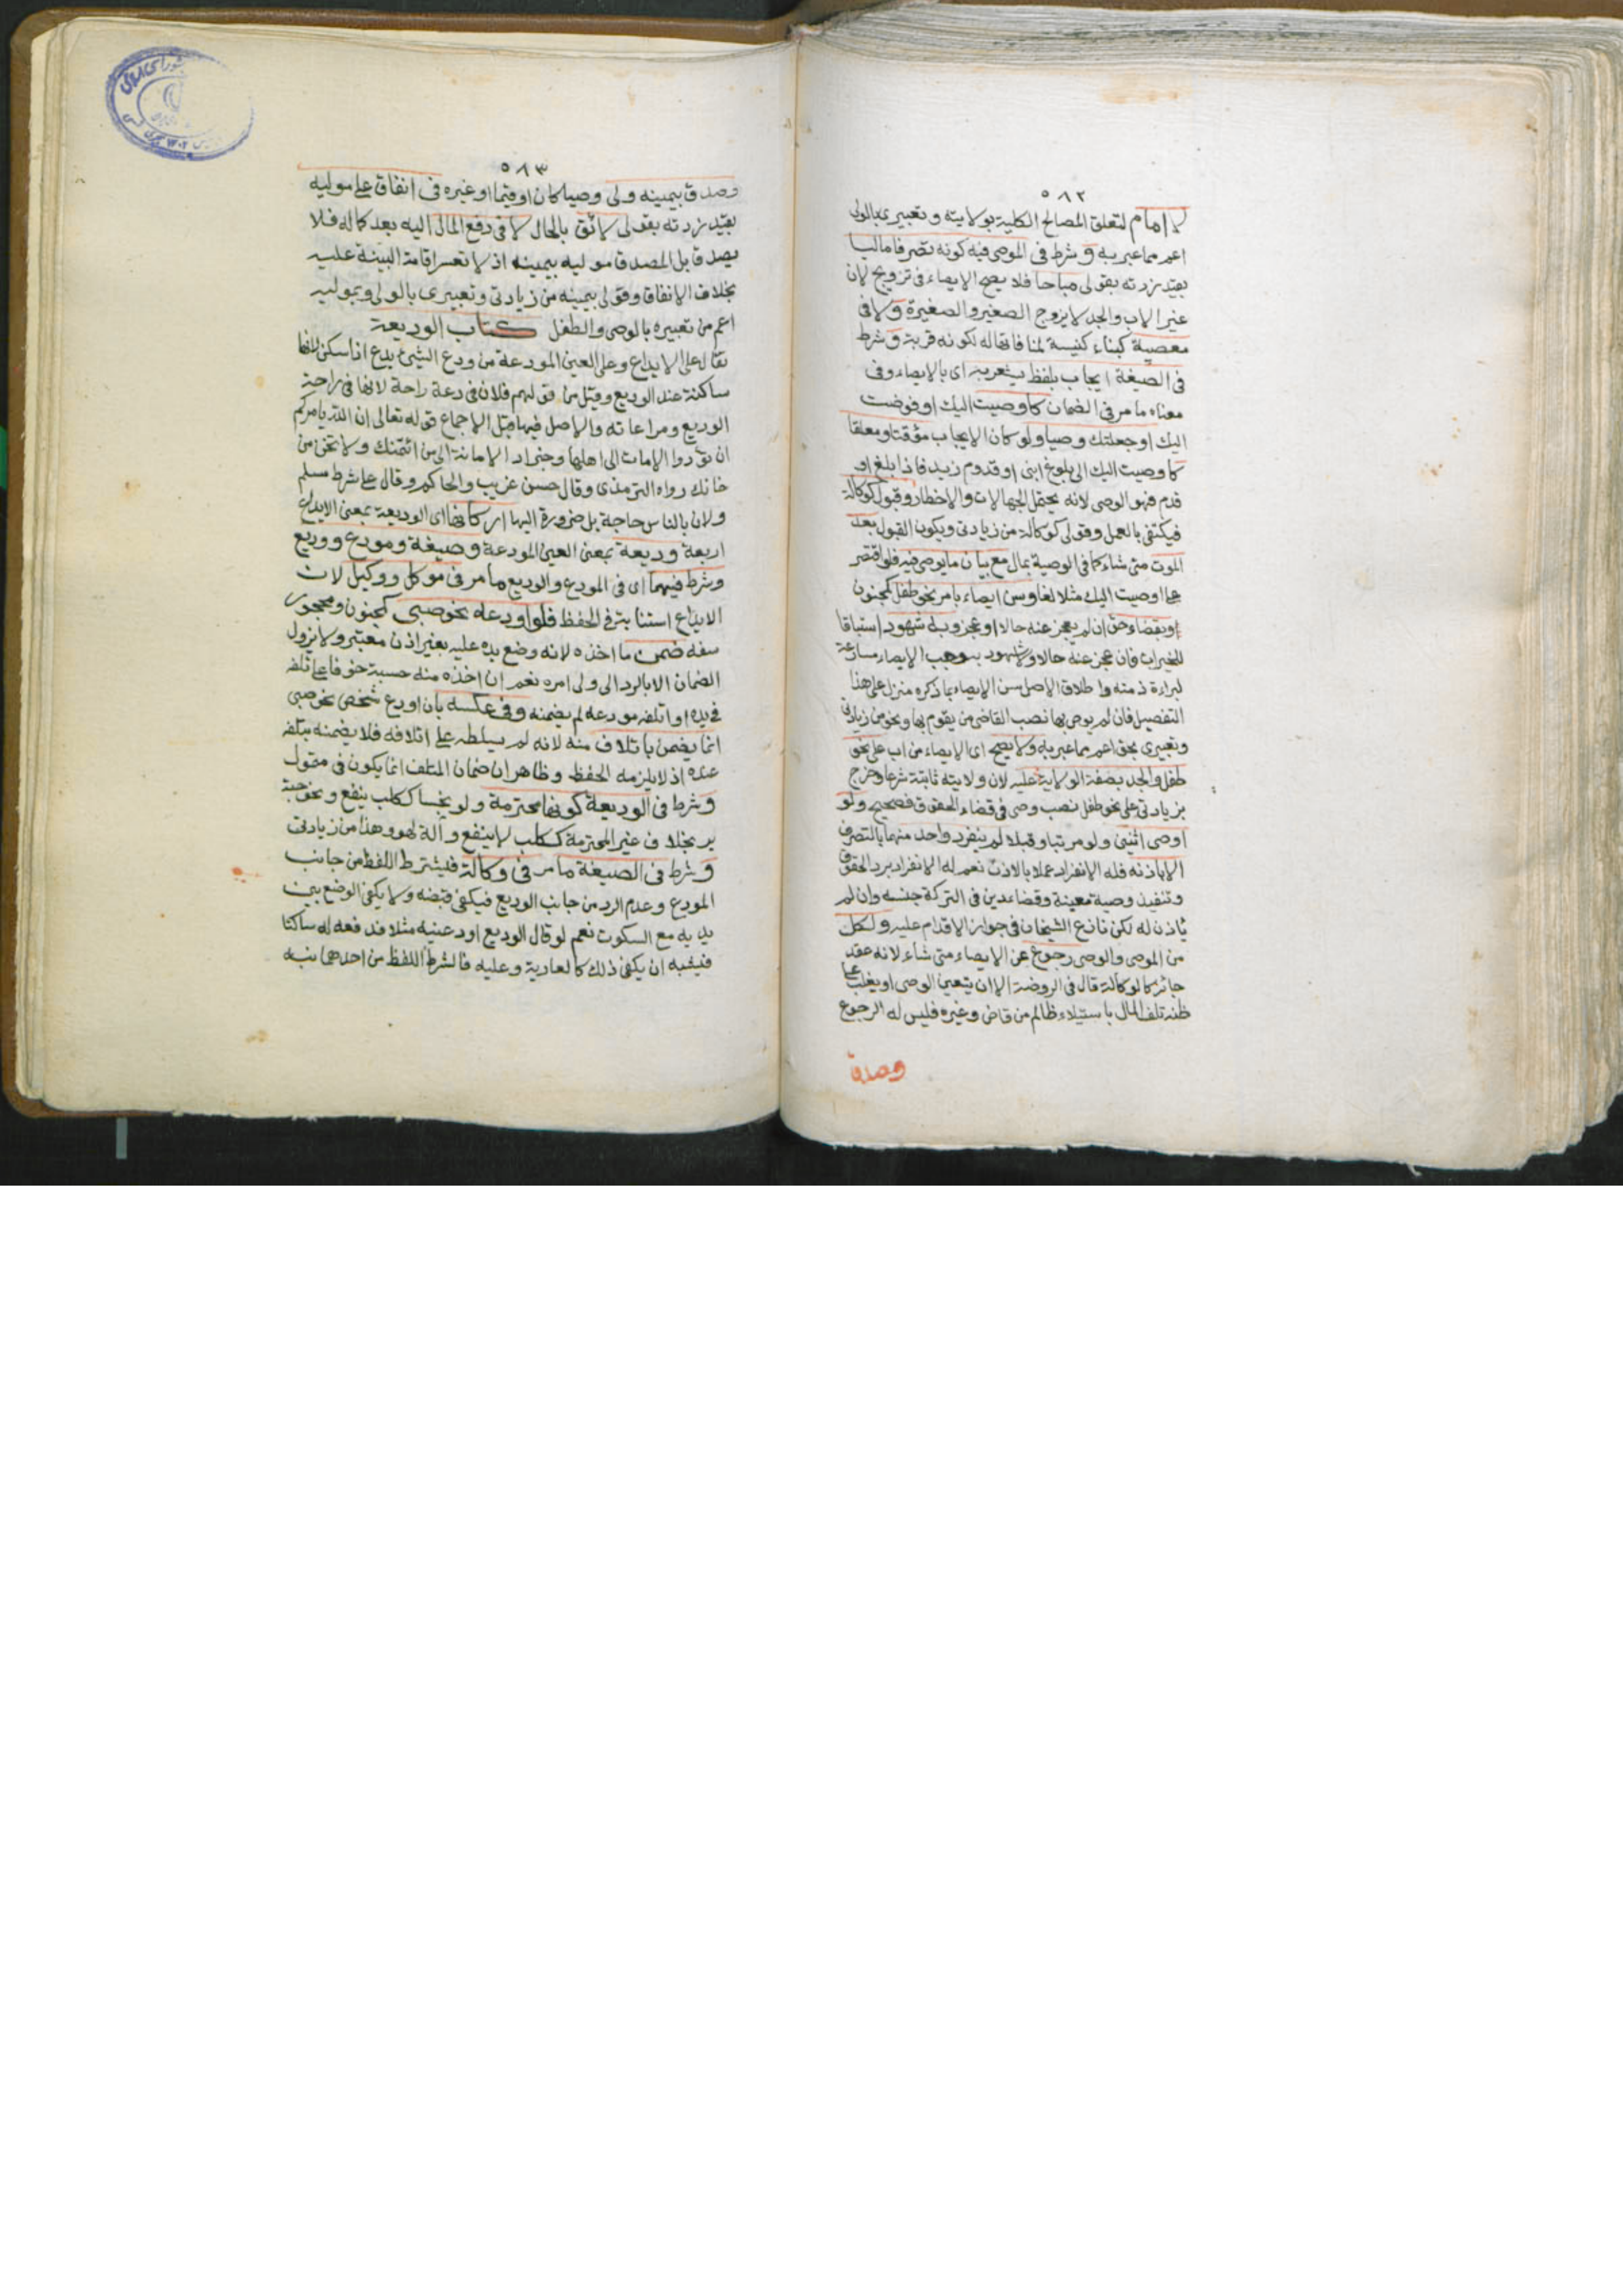 ٥٨٢
لا امام لتعلق المصالح الكلية بولايته و تعبيرى بالولى
اعم مما عبر به و شرط فى الموصى فيه كونه تصرفا ماليا
بقيد زدته بقولى مباحا فلا يصح الايصاء فى تزويج لان
غير الاب والجد لا يزوج الصغير والصغيرة ولا فى
معصية كبناء كنيسة لمنافاتها له لكونه قربة و شرط
فى الصيغة ايجاب بلفظ يشعر به اى بالايصاء وفى
معناه ما مر فى الضمان كاوصيت اليك او فوضت
اليك او جعلتك وصيا ولو كان الايجاب مؤقتا ومعلقا
كاوصيت اليك الى بلوغ ابنى او قدوم زيد فاذا بلغ او
قدم فهو الوصى لانه يحتمل الجهالات والاخطار وقبول كوكالة
فيكتفى بالعمل وقولى كوكالة من زيادتى ويكون القبول بعد
الموت متى شاء كما فى الوصية بمال مع بيان ما يوصى فيه فلو اقتصر
على اوصيت اليك مثلا لغا وسن ايصاء بامر نحو طفل كمجنون
وبقضاء حق ان لم يعجز عنه حالا او عجز وبه شهود استباقا
للخيرات فان عجز عنه حالا ولا شهود به وجب الايصاء مسارعة
لبراءة ذمته واطلاق الاصل سن الايصاء بما ذكره منزل على هذا
التفصيل فان لم يوص بها نصب القاضى من يقوم بها ونحو من زيادتى
وتعبيرى بحق اعم مما عبر به ولا يصح اى الايصاء من اب على نحو
طفل والجد بصفة الولاية عليه لان ولايته ثابتة شرعا وخرج
بزيادتى على نحو طفل نصب وصى فى قضاء الحقوق فصحيح ولو
اوصى اثنين ولو مرتبا وقبلا لم ينفرد واحد منهما بالتصرف
الا باذنه فله الانفراد عملا بالاذن نعم له الانفراد برد الحقوق
وتنفيذ وصية معينة وقضاء دين فى التركة جنسه وان لم
ياذن له لكن نازع الشيخان فى جواز الاقدام عليه ولكل
من الموصى والوصى رجوع عن الايصاء متى شاء لانه عقد
جائز كالوكالة قال فى الروضة الا ان يتعين الوصى او يغلب على
ظنه تلف المال باستيلاء ظالم من قاض وغيره فليس له الرجوع
وصدق
٥٨٣
وصدق بيمينه ولى وصيا كان او قيما او غيره فى انفاق على موليه
بقيد زدته بقولى لائق بالحال لا فى دفع المال اليه بعد كماله فلا
يصدق بل المصدق موليه بيمينه اذ لا تعسر اقامة البينة عليه
بخلاف الانفاق وقولى بيمينه من زيادتى وتعبيرى بالولى وبموليه
اعم من تعبيره بالوصى والطفل كتاب الوديعة
تقال على الايداع وعلى العين المودعة من ودع الشىء يدع اذا سكن لانها
ساكنة عند الوديع وقيل من قولهم فلان فى دعة راحة لانها فى راحة
الوديع ومراعاته والاصل فيها قبل الاجماع قوله تعالى ان الله يامركم
ان تؤدوا الامانات الى اهلها وخبر اد الامانة الى من ائتمنك ولا تخن من
خانك رواه الترمذى وقال حسن غريب والحاكم وقال على شرط مسلم
ولان بالناس حاجة بل ضرورة اليها اركانها اى الوديعة بمعنى الايداع
اربعة وديعة بمعنى العين المودعة وصيغة ومودع ووديع
وشرط فيهما اى فى المودع والوديع ما مر فى موكل ووكيل لان
الايداع استنابة فى الحفظ فلو اودعه نحو صبى كمجنون ومحجور
سفه ضمن ما اخذه لانه وضع يده عليه بغير اذن معتبر ولا يزول
الضمان الا بالرد الى ولى امره نعم ان اخذه منه حسبة خوفا على تلفه
فى يده او اتلفه مودعه لم يضمنه وفى عكسه بان اودع شخص نحو صبى
انما يضمن باتلاف منه لانه لم يسلطه على اتلافه فلا يضمنه بتلفه
عنده اذ لا يلزمه الحفظ وظاهر ان ضمان المتلف انما يكون فى متمول
وشرط فى الوديعة كونها محترمة ولو نجسا ككلب ينفع ونحو حبة
بر بخلاف غير المحترمة ككلب لا ينفع وآلة لهو وهذا من زيادتى
وشرط فى الصيغة ما مر فى وكالة فيشترط اللفظ من جانب
المودع وعدم الرد من جانب الوديع فيكفى قبضه ولا يكفى الوضع بين
يديه مع السكوت نعم لو قال الوديع اودعنيه مثلا فدفعه له ساكتا
فيشبه ان يكفى ذلك كالعارية وعليه فالشرط اللفظ من احدهما نبه